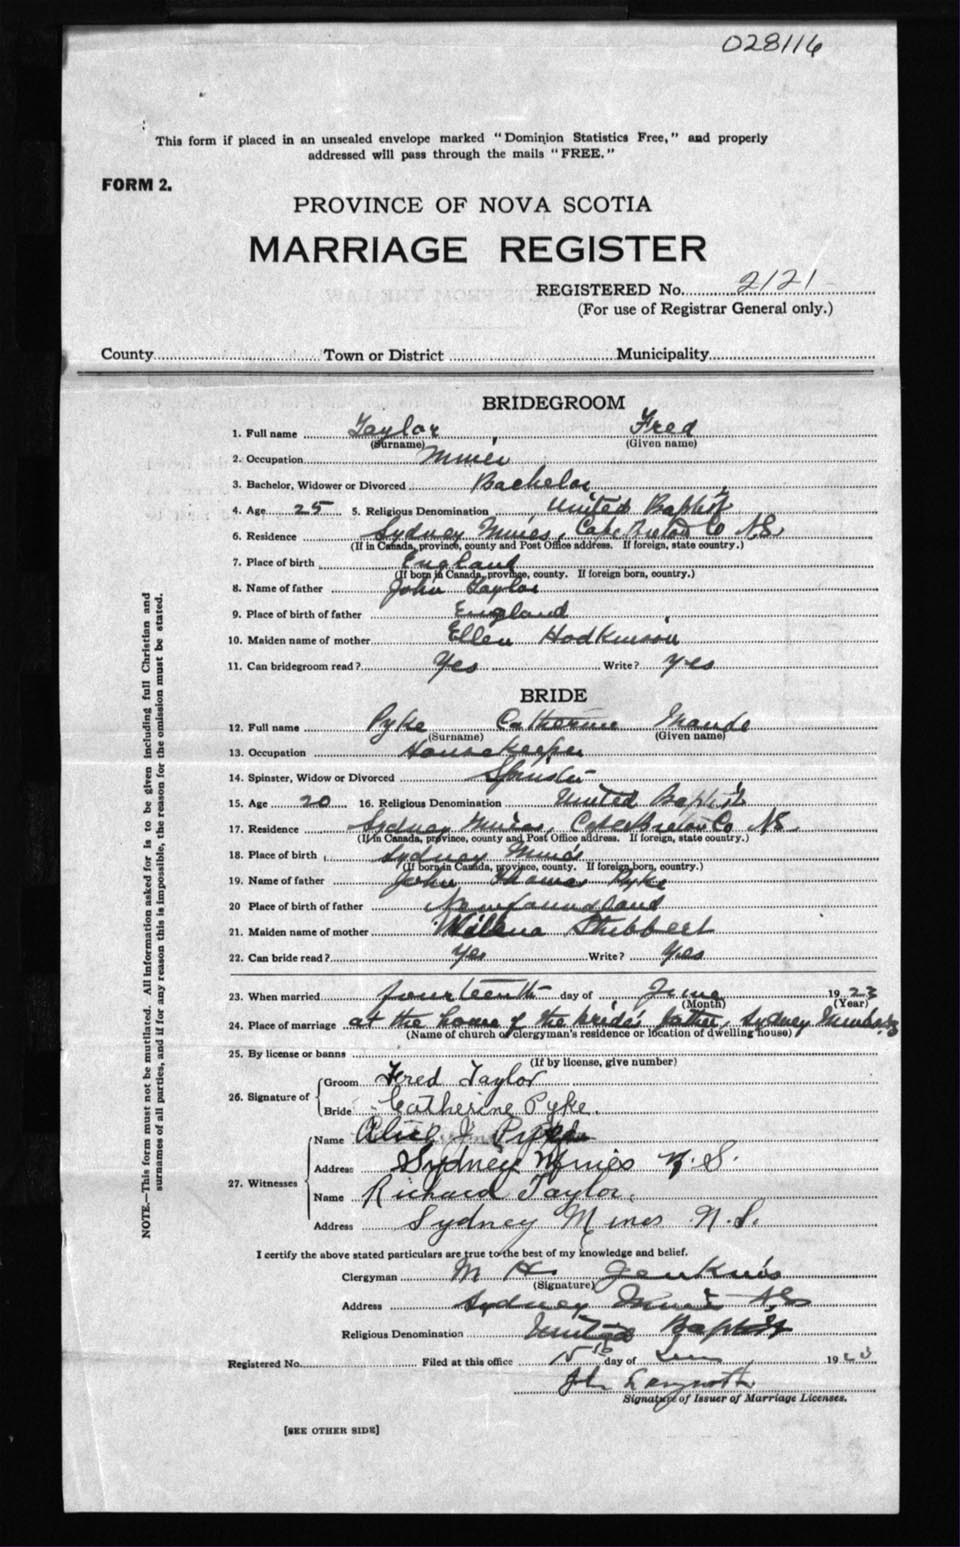 028116
This form if placed in an unsealed envelope marked "Dominion Statistics Free," and properly
addressed will pass through the mails "FREE."
FORM 2.
PROVINCE OF NOVA SCOTIA
MARRIAGE REGISTER
REGISTERED No. 2121
(For use of Registrar General only.)
County Town or District Municipality
BRIDEGROOM
1. Full name Taylor Fred
(Surname) (Given name)
2. Occupation Miner
3. Bachelor, Widower or Divorced Bachelor
4. Age 25 5. Religious Denomination United Baptist
6. Residence Sydney Mines, Cape Breton Co N.S
(If in Canada, province, county and Post Office address. If foreign, state country.)
7. Place of birth England
(If born in Canada, province, county. If foreign born, country.)
8. Name of father John Taylor
9. Place of birth of father England
10. Maiden name of mother Ellen Hodkinson
11. Can bridegroom read? Yes Write? Yes
BRIDE
12. Full name Pyke Catherine Maude
(Surname) (Given name)
13. Occupation Housekeeper
14. Spinster, Widow or Divorced Spinster
15. Age 20 16. Religious Denomination United Baptist
17. Residence Sydney Mines, Cape Breton Co N.S.
(If in Canada, province, county and Post Office address. If foreign, state country.)
18. Place of birth Sydney Mines
(If born in Canada, province, county. If foreign born, country.)
19. Name of father John Thomas Pyke
20 Place of birth of father Newfoundland
21. Maiden name of mother Stubbert
22. Can bride read? Yes Write? Yes
23. When married fourteenth day of June 1923
(Month) (Year)
24. Place of marriage at the home of the bride's father, Sydney Mines
(Name of church or clergyman's residence or location of dwelling house)
25. By license or banns
(If by license, give number)
26. Signature of Groom Fred Taylor
Bride Catherine Pyke.
27. Witnesses Name Alice J Pyke
Address Sydney Mines N.S.
Name Richard Taylor.
Address Sydney Mines N.S.
I certify the above stated particulars are true to the best of my knowledge and belief.
Clergyman M H Jenkins
(Signature)
Address Sydney Mines N.S
Religious Denomination United Baptist
Registered No. Filed at this office 15th day of June 1923
John
Signature of Issuer of Marriage Licenses.
[SEE OTHER SIDE]
NOTE.—This form must not be mutilated. All information asked for is to be given including full Christian and
surnames of all parties, and if for any reason this is impossible, the reason for the omission must be stated.